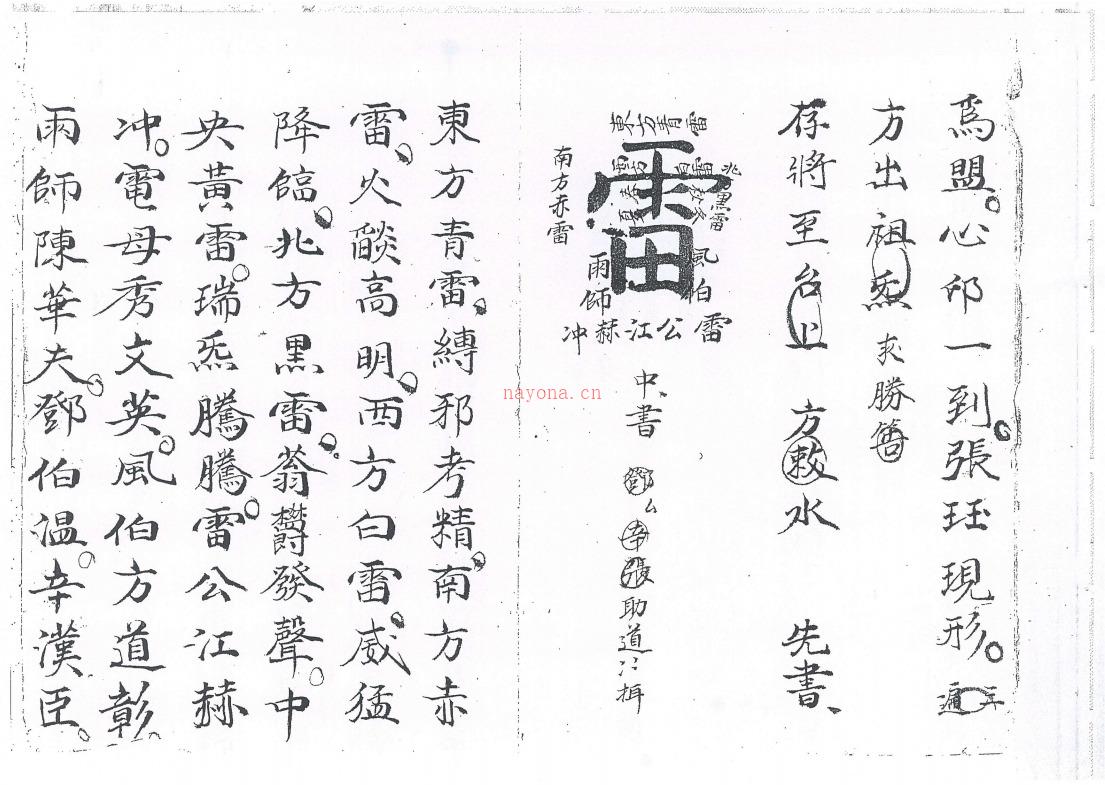 爲盟。心印一到。張珏現形。五遍
方出祖炁 求勝
存將至台上 方敕水 先書、
東方青雷
南方赤雷
西方白雷
北黑雷
雷
雨師
風伯
雷公江赫冲
中、書 鄧 辛張助道
東方青雷。縛邪考精。南方赤
雷。火燄高明。西方白雷。威猛
降臨。北方黑雷。蓊欝發聲。中
央黃雷。瑞炁騰騰。雷公江赫
冲。電母秀文英。風伯方道彰。
雨師陳華夫。鄧伯溫。辛漢臣。
nayona.cn